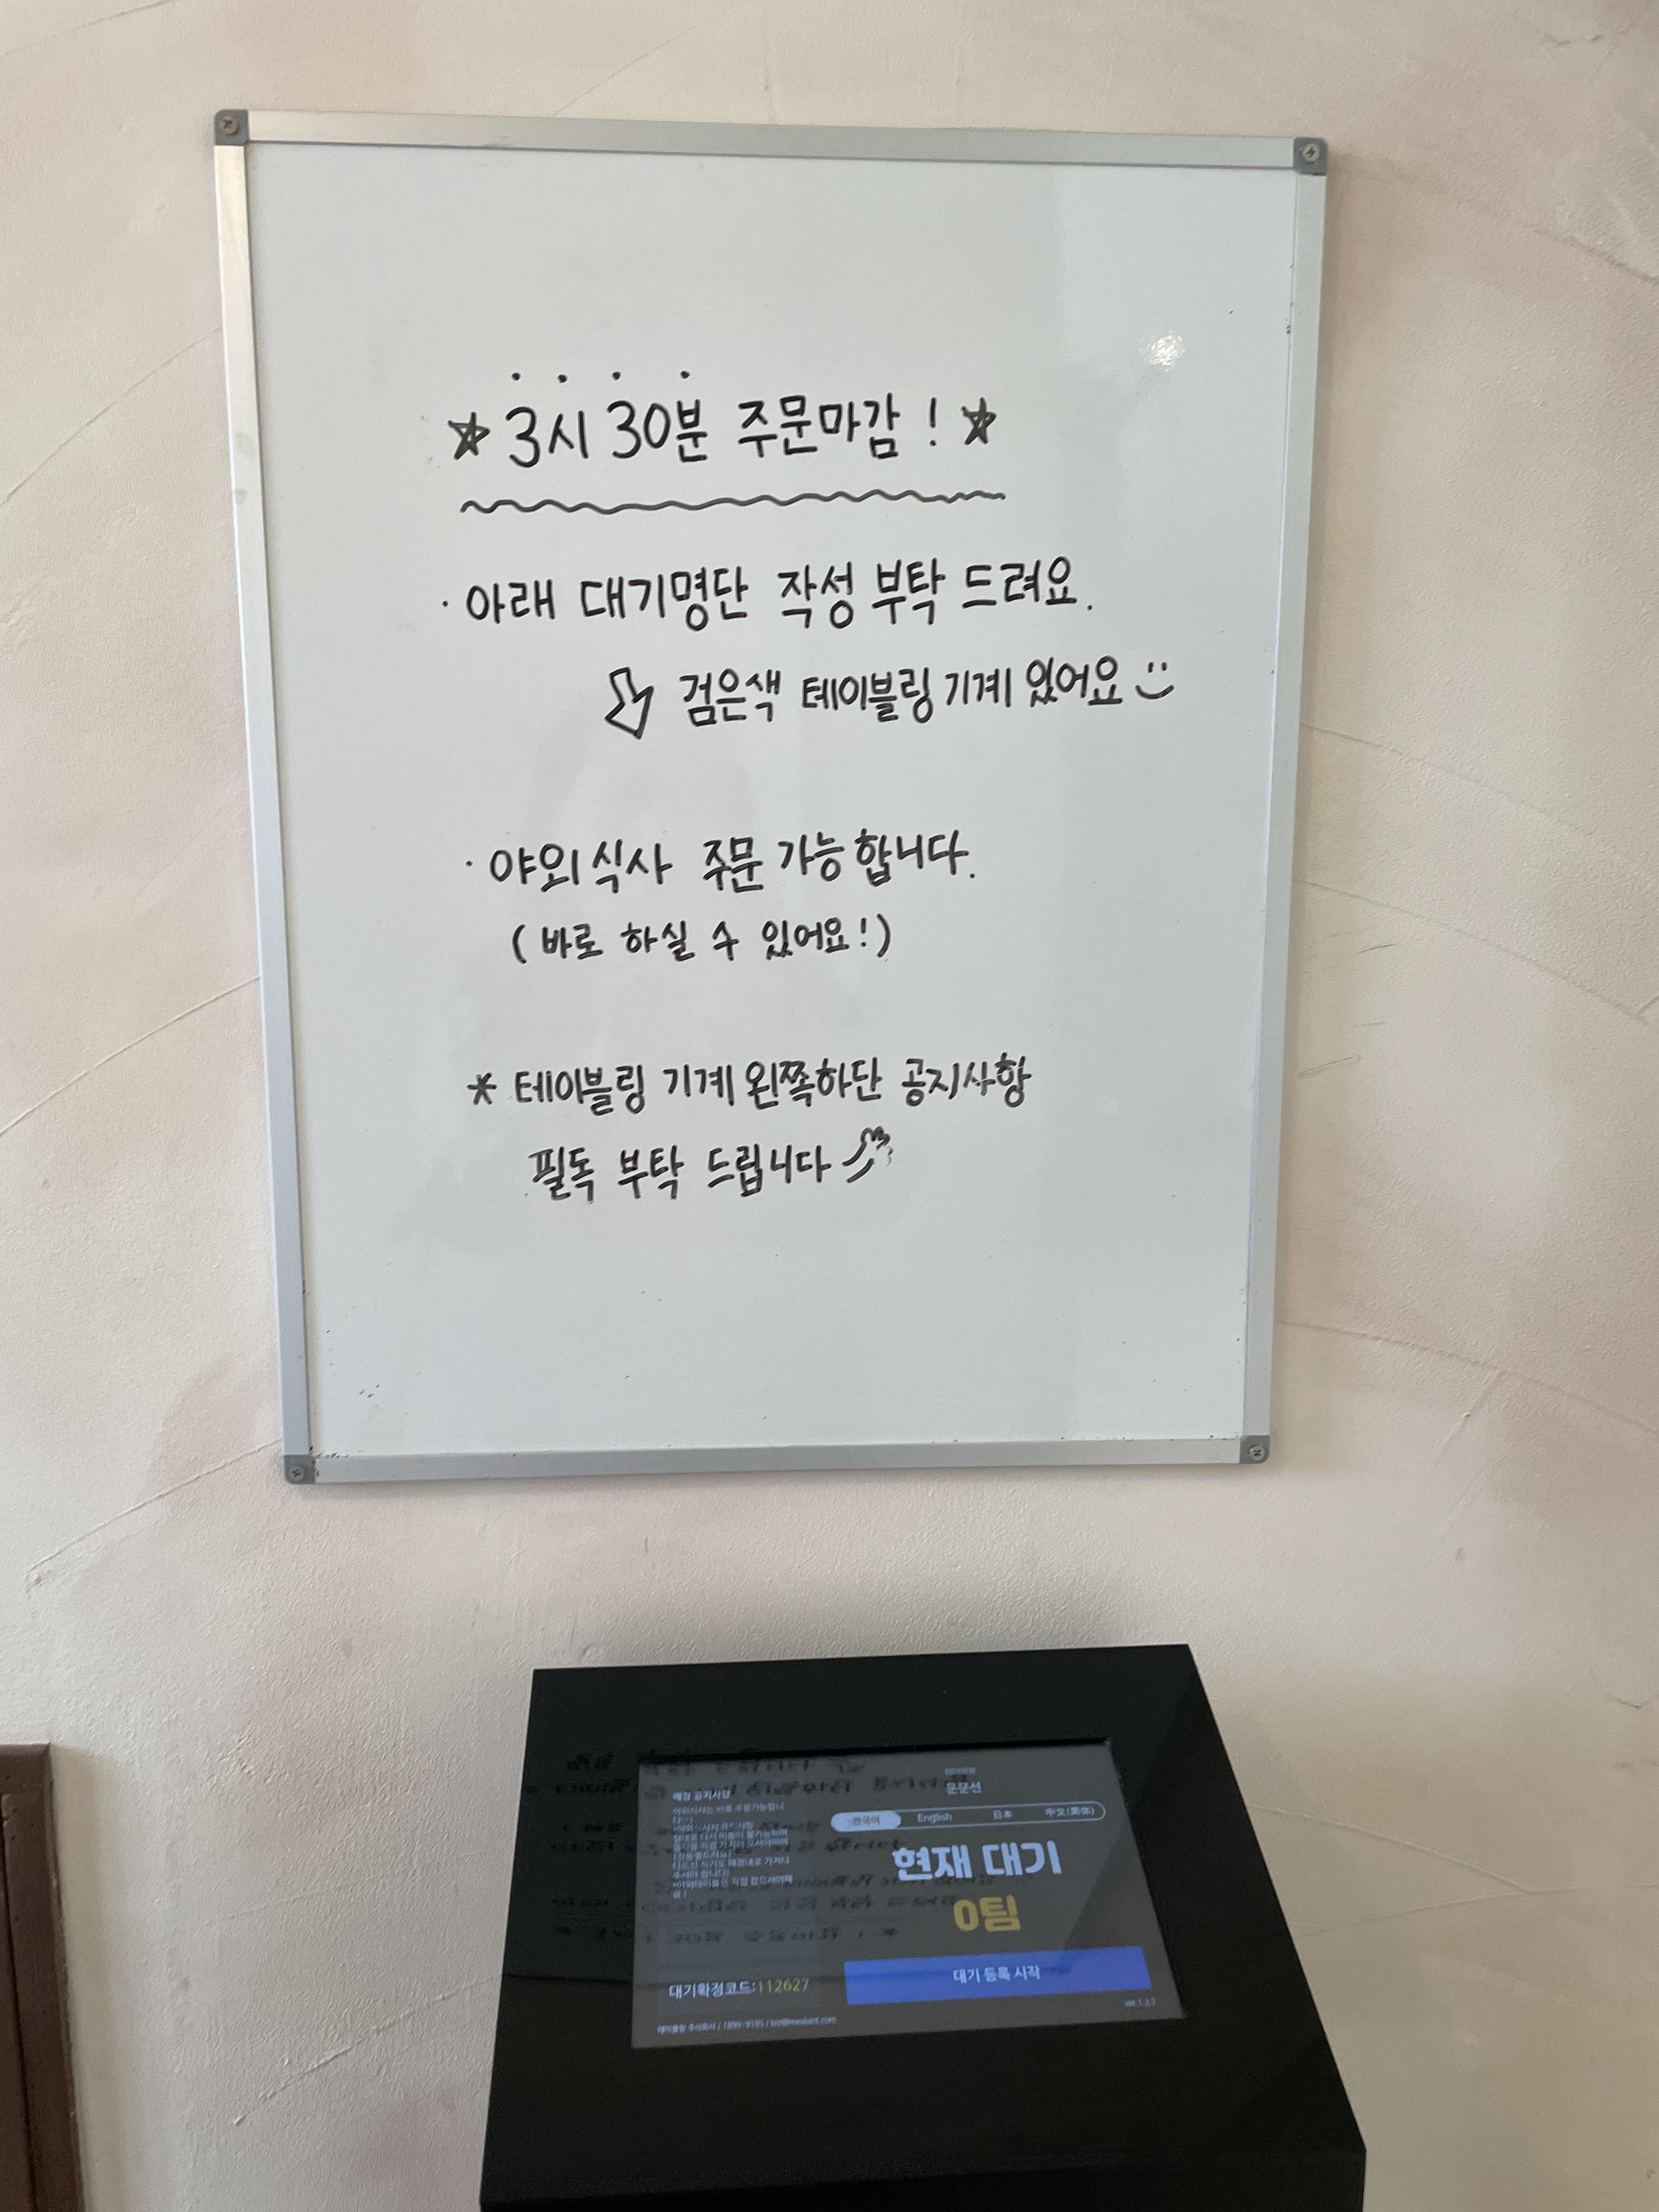 ☆ 3시 30분 주문마감! ☆
· 아래 대기명단 작성 부탁 드려요.
검은색 테이블링 기계 있어요
· 야외식사 주문 가능합니다.
(바로 하실 수 있어요!)
* 테이블링 기계 왼쪽하단 공지사항
필독 부탁 드립니다
매장 공지사항
문문선
한국어 English 日本 中文(简体)
현재 대기
0팀
대기확정코드:112627
대기 등록 시작